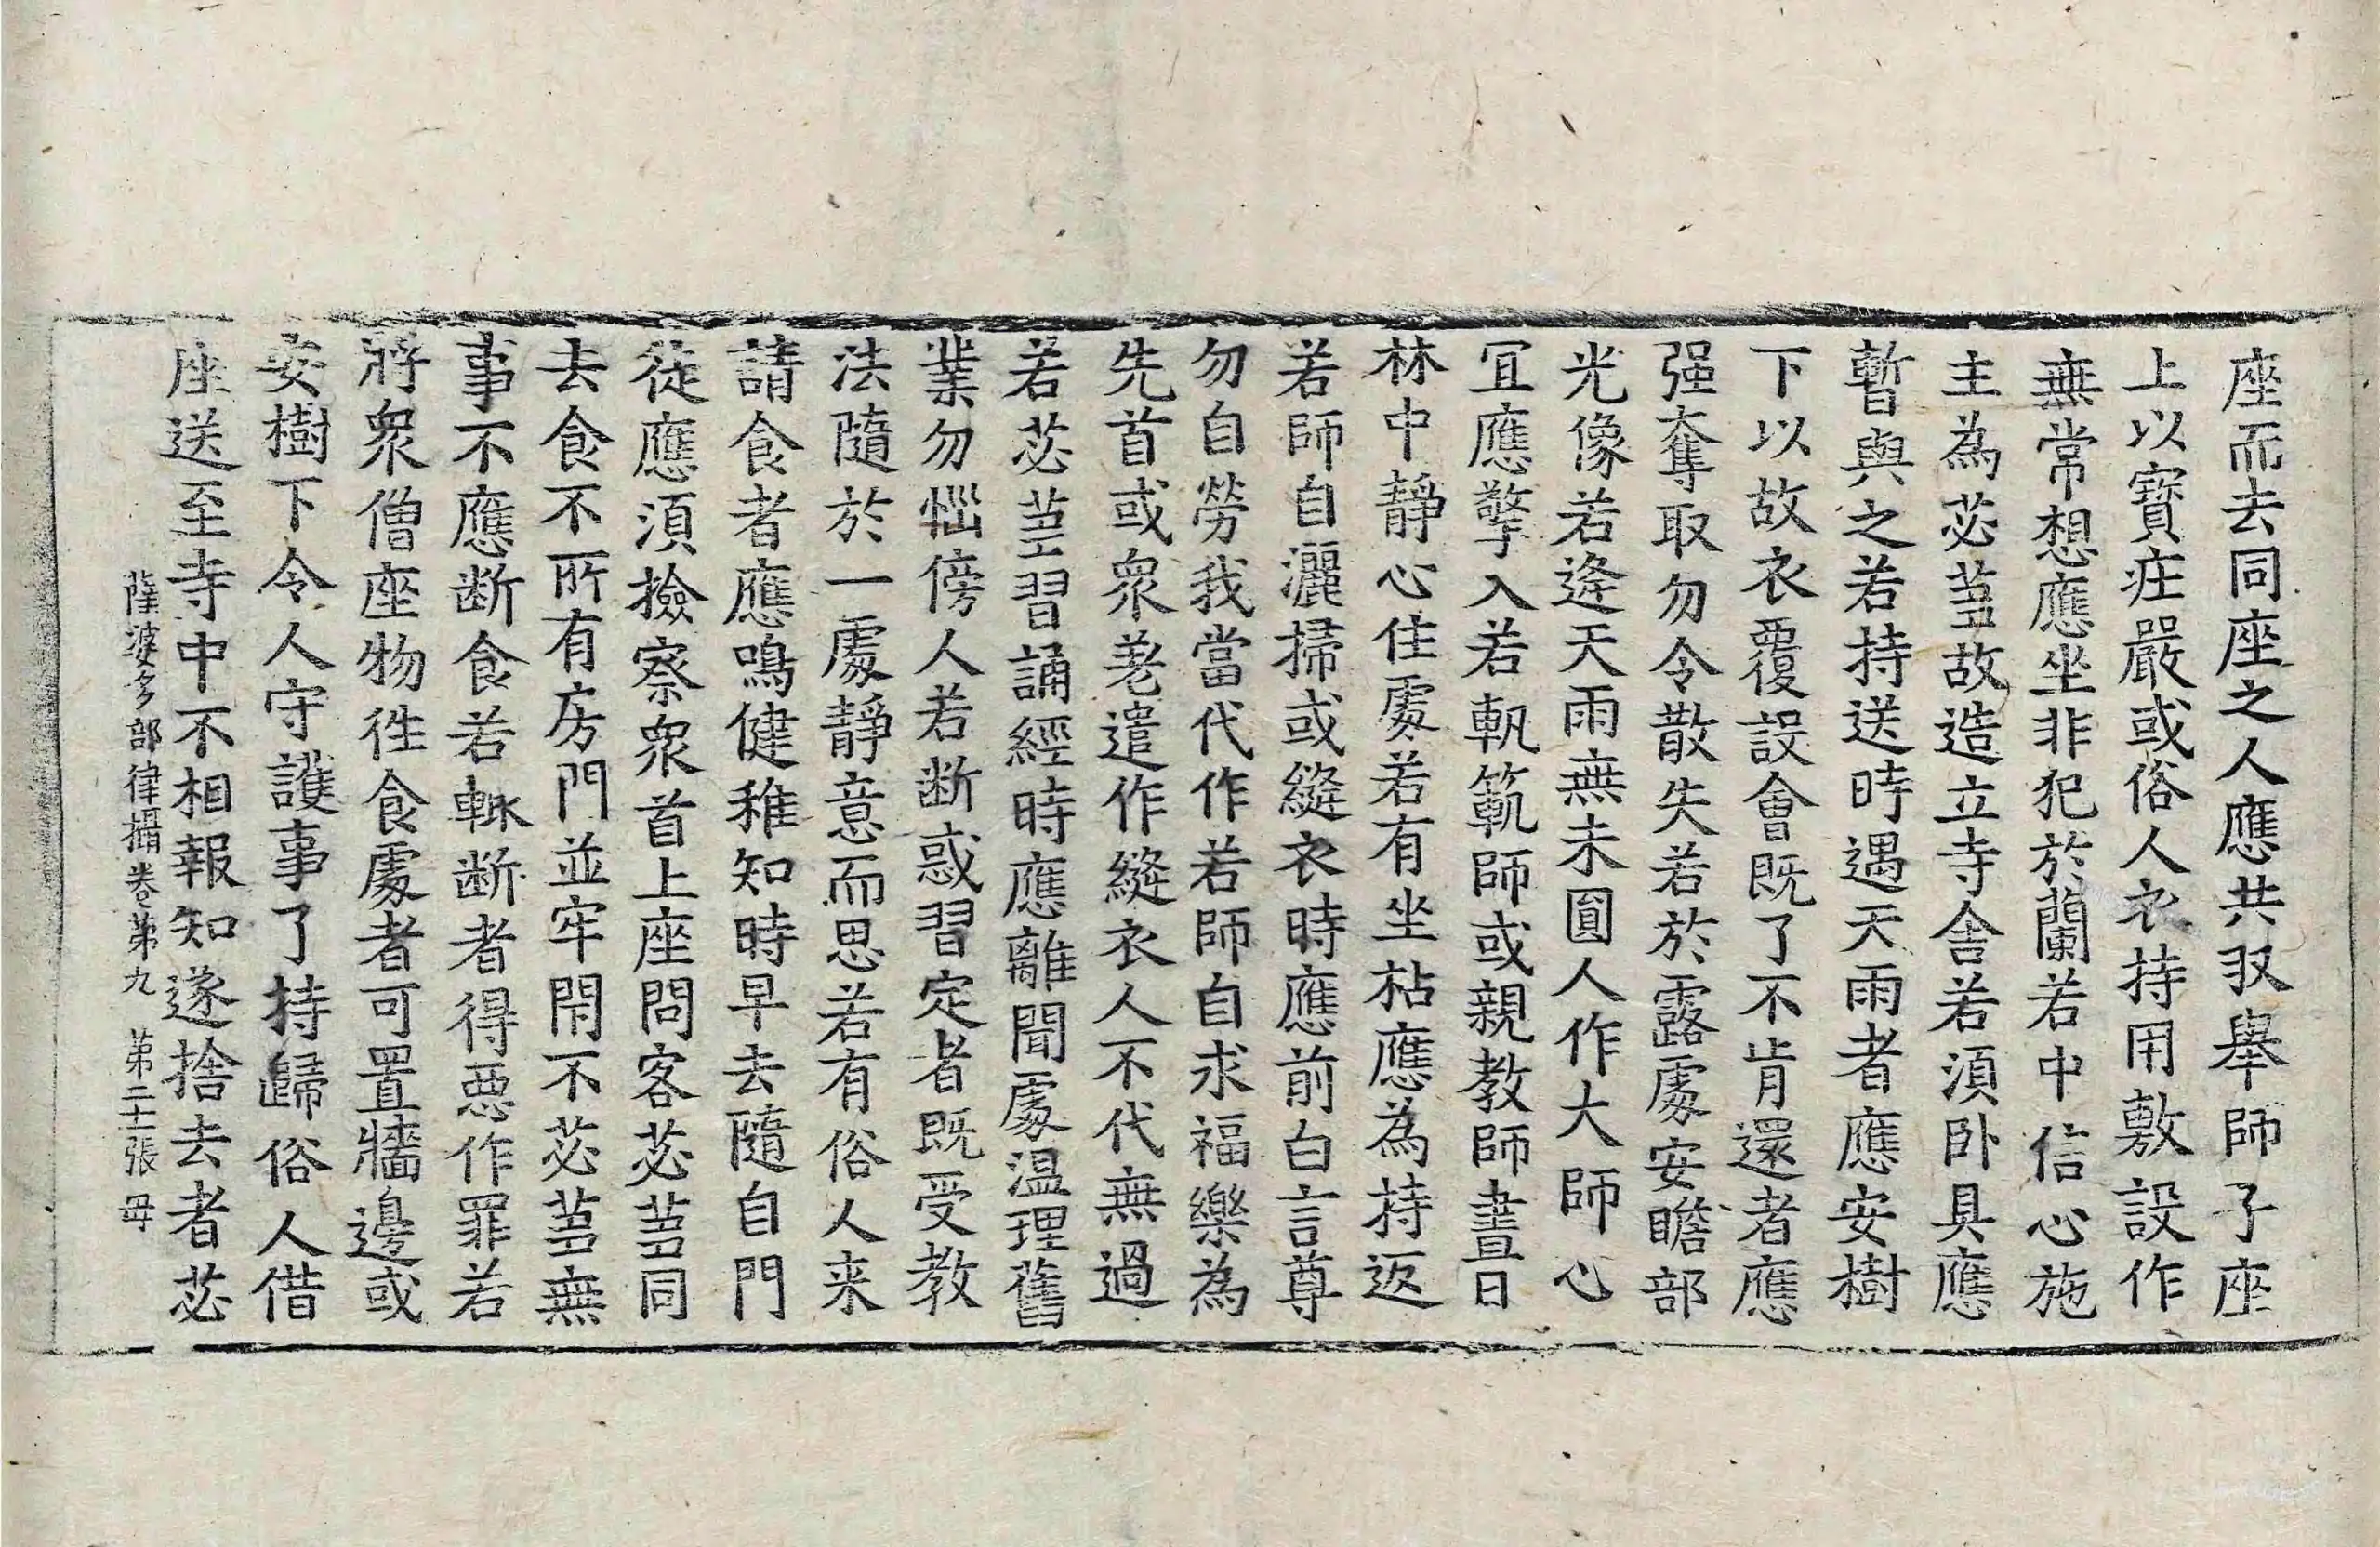 座而去同座之人應共収舉師子座
上以寶莊嚴或俗人衣持用敷設作
無常想應坐非犯於蘭若中信心施
主為苾芻故造立寺舍若須卧具應
暫與之若持送時遇天雨者應安樹
下以故衣覆設會既了不肯還者應
强奪取勿令散失若於露處安瞻部
光像若逢天雨無未圓人作大師心
冝應擎入若軌範師或親教師晝日
林中靜心住處若有坐枯應為持返
若師自灑掃或縫衣時應前白言尊
勿自勞我當代作若師自求福樂為
先首或衆差遣作縫衣人不代無過
若苾芻習誦經時應離聞處温理舊
業勿惱傍人若断惑習定者既受教
法隨於一處靜意而思若有俗人来
請食者應鳴健稚知時早去隨自門
徒應須撿察衆首上座問客苾芻同
去食不所有房門並牢閇不苾芻無
事不應断食若輙断者得悪作罪若
將衆僧座物徃食處者可置牆邊或
安樹下令人守護事了持歸俗人借
座送至寺中不相報知遂捨去者苾
薩波多部律攝卷第九 第二十二張 毋